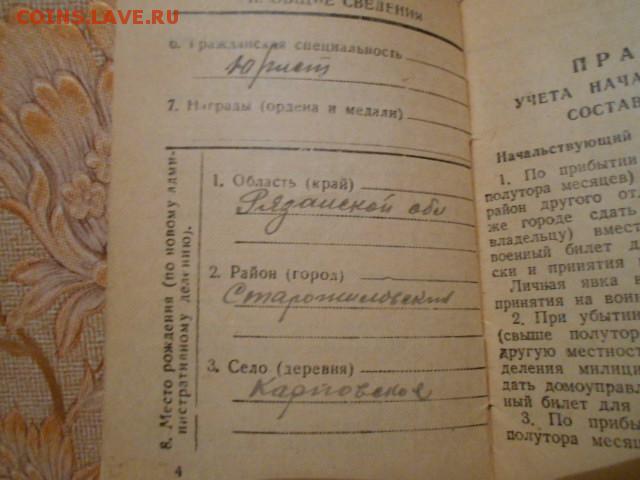 COINS.LAVE.RU
II. ОБЩИЕ СВЕДЕНИЯ
6. Гражданская специальность
Юрист
7. Награды (ордена и медали)
8. Место рождения (по новому адми-
нистративному делению).
1. Область (край)
Рязанской обл
2. Район (город)
Старожиловский
3. Село (деревня)
Карповское
4
ПРА
УЧЕТА НАЧА
СОСТАВ
Начальствующий
1. По прибытии
полутора месяцев)
район другого от
же городе сдать
владельцу) вмест
военный билет д
ски и принятия
Личная явка
принятия на вои
2. При убытии
(свыше полутор
другую местност
деления милици
дать домоуправ
ный билет для
3. По прибы
полутора месяц